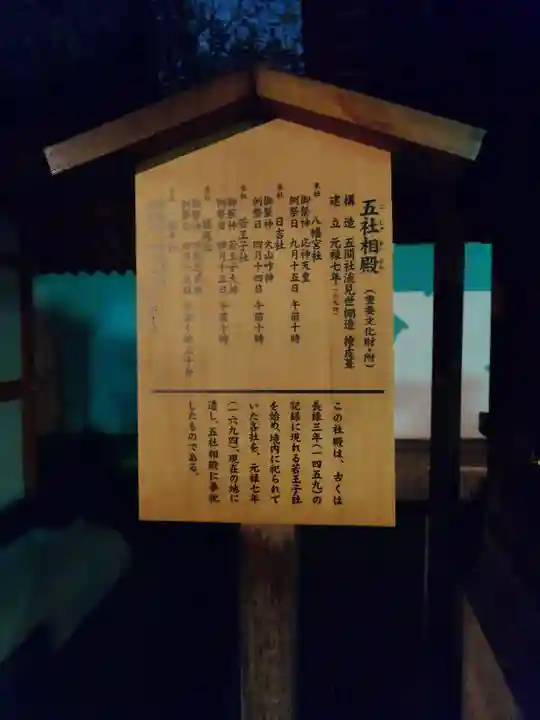 五社相殿（重要文化財・附）
構造 五間社流見世棚造 檜皮葺
建立 元禄七年（一六九四）
末社 八幡宮社
御祭神 応神天皇
例祭日 九月十五日 午前十時
末社 日吉社
御祭神 大山咋神
例祭日 四月十四日 午前十時
末社 若王子社
御祭神 若王子大神
例祭日 四月十五日 午前十時
この社殿は、古くは
長禄三年（一四五九）の
記録に現れる若王子社
を始め、境内に祀られて
いた各社を、元禄七年
（一六九四）、現在の地に
遷し、五社相殿に奉祀
したものである。